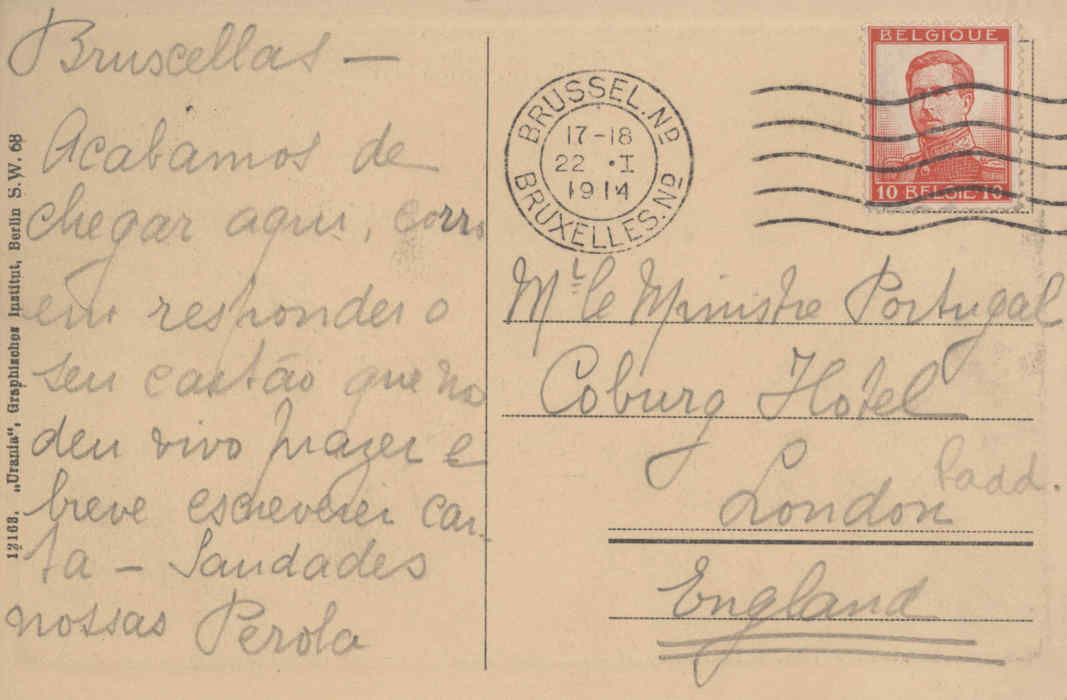 Bruscellas —
Acabamos de
chegar aqui, corro
em responder o
seu cartão que no
deu vivo prazer e
breve escreverei car-
ta — Saudades
nossas Perola
12163. „Urania", Graphisches Institut, Berlin S. W. 68
BRUSSEL.No
17-18
22 . I
1914
BRUXELLES.No
BELGIQUE
10 BELGIË 10
Mr le Ministre Portugal
Coburg Hotel
London
Padd.
England